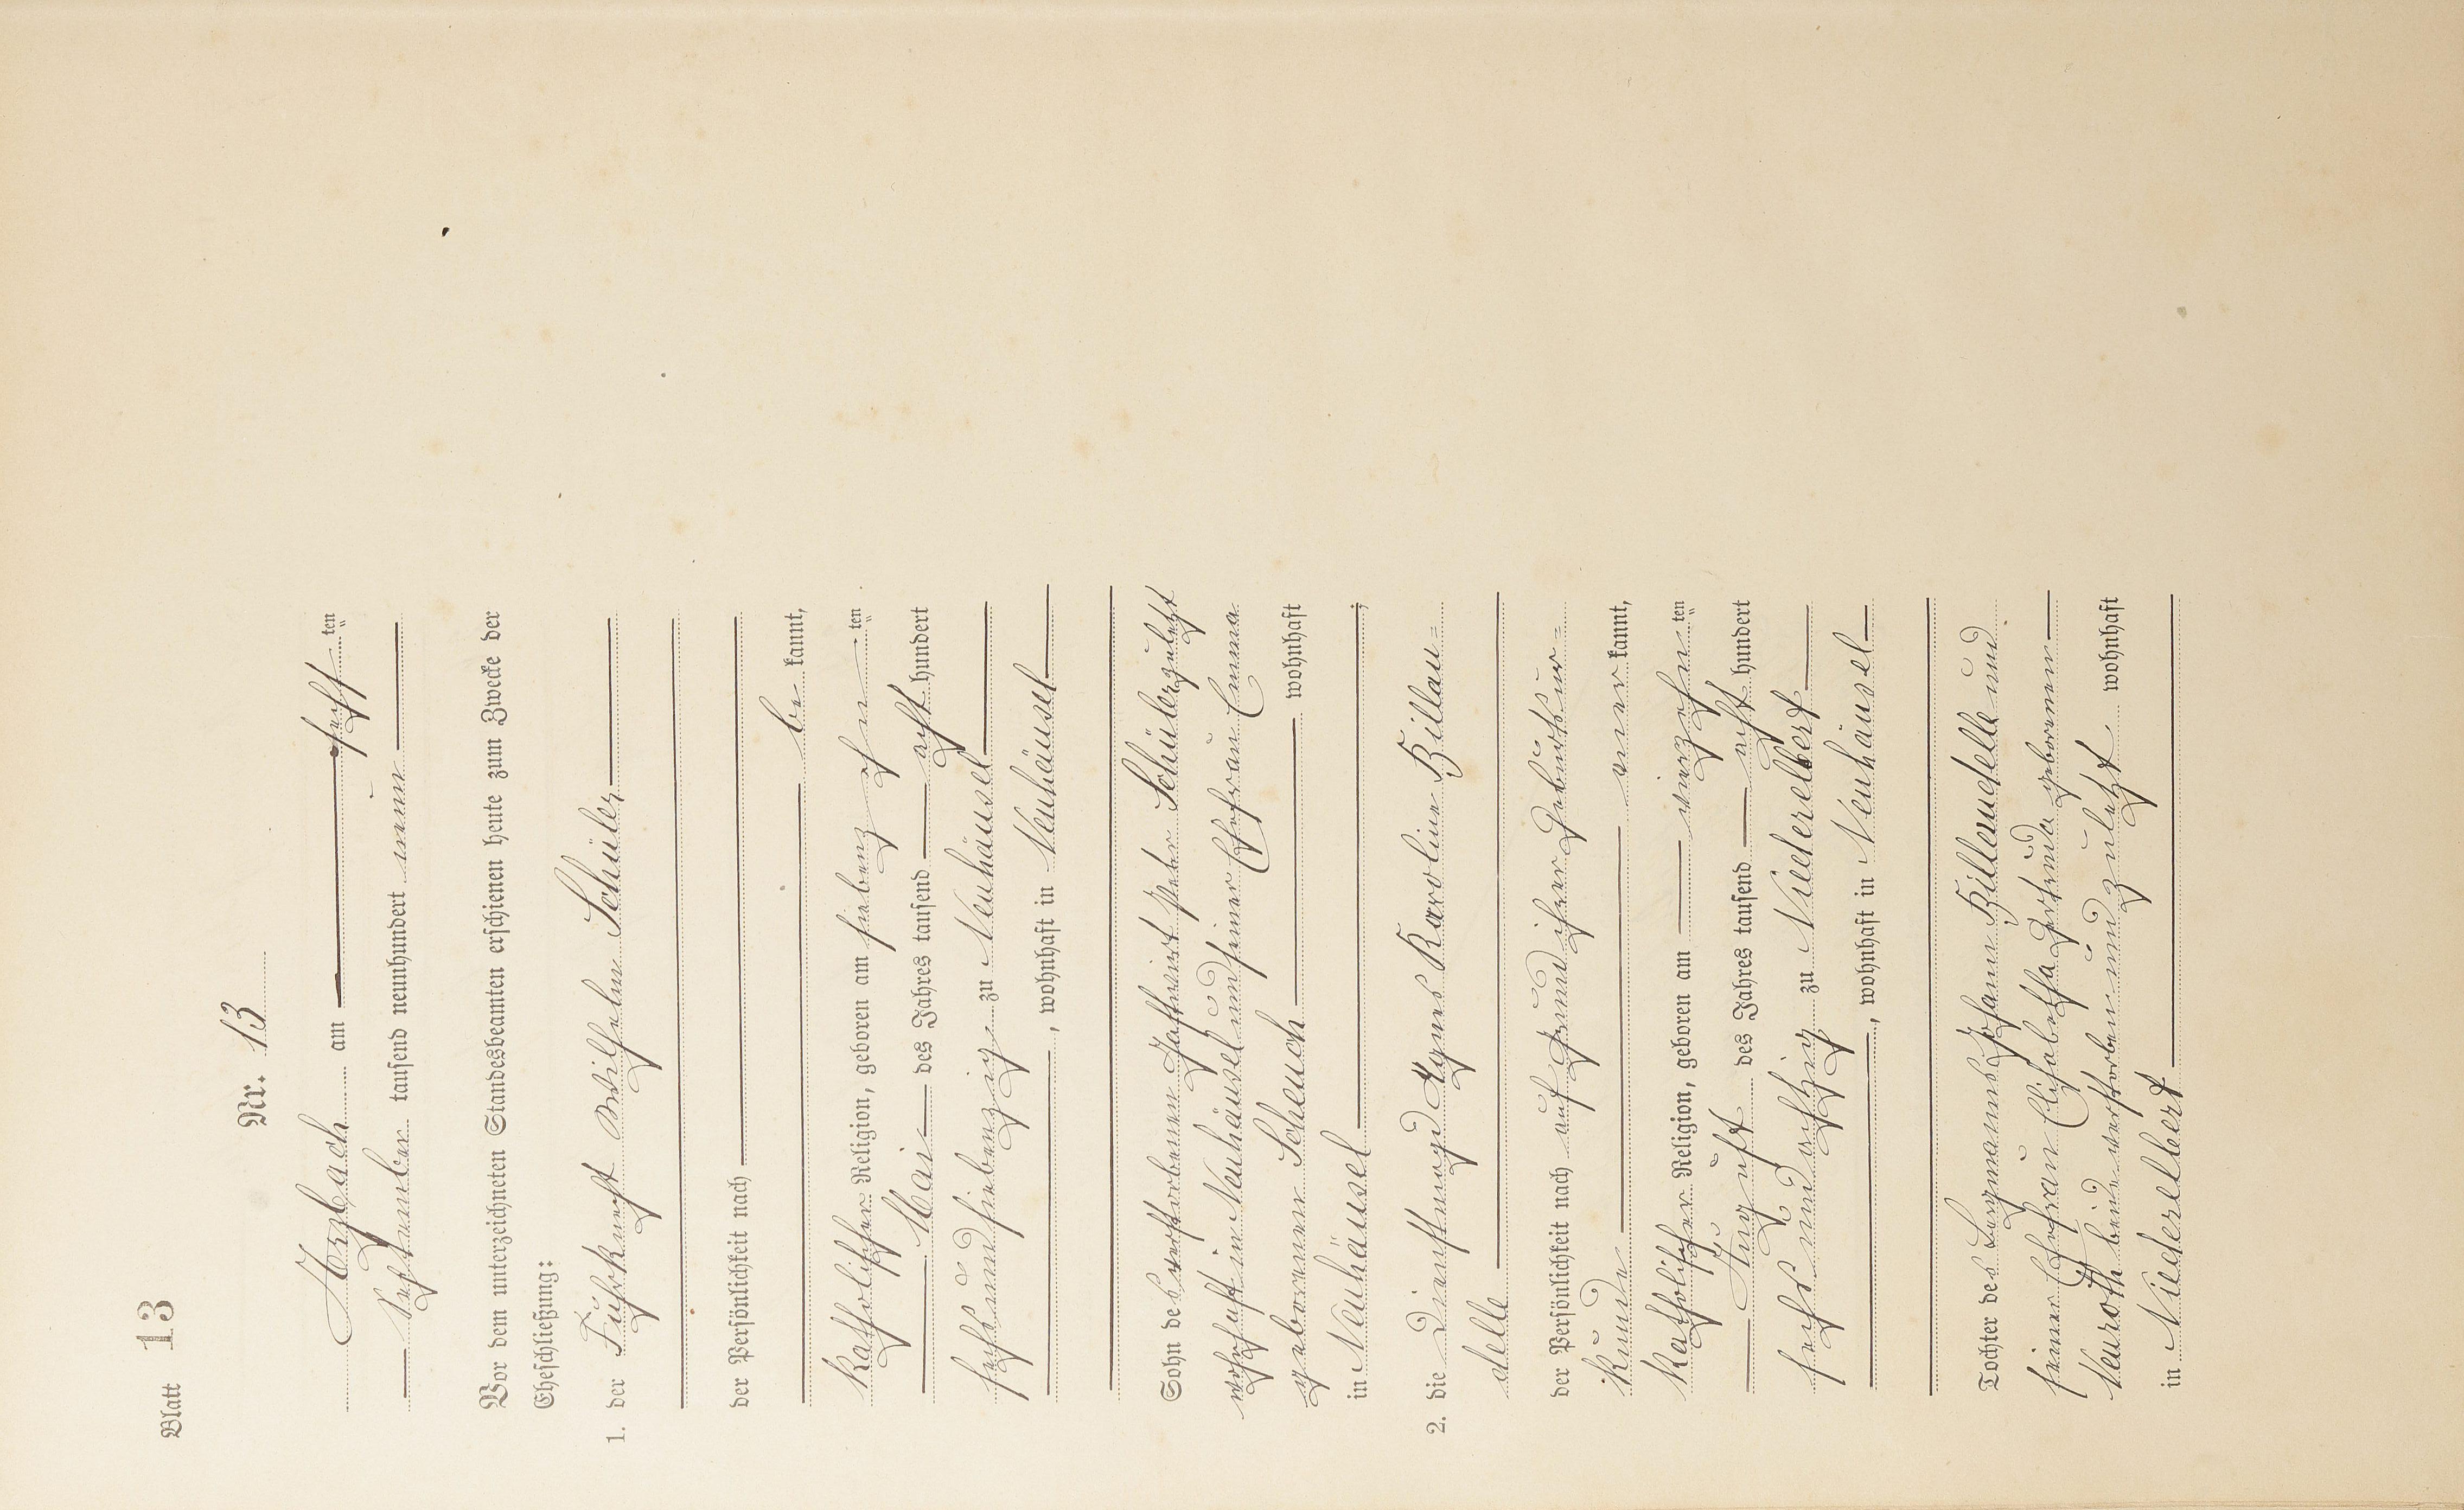 Blatt 13
Nr. 13
Arzbach am sechsten
September tausend neunhundert neun
Vor dem unterzeichneten Standesbeamten erschienen heute zum Zwecke der
Eheschließung:
1. der Fuhrknecht Wilhelm Schüler
der Persönlichkeit nach
be kannt,
katholischer Religion, geboren am siebenzehn ten
Mai des Jahres tausend acht hundert
sechsundsiebenzig zu Neuhäusel
, wohnhaft in Neuhäusel
Sohn des verstorbenen Gastwirt Peter Schüler zuletzt
wohnhaft in Neuhäusel und seiner Ehefrau Emma
geborenen Scheuch wohnhaft
in Neuhäusel ;
2. die Dienstmagd Agnes Karoline Billau=
delle
der Persönlichkeit nach auf Grund ihrer Geburtsur=
kunde aner kannt,
katholischer Religion, geboren am vierzehn ten
August des Jahres tausend acht hundert
sechs und achtzig zu Niederelbert
, wohnhaft in Neuhäusel
Tochter des Bergmanns Johann Billaudelle und
seiner Ehefrau Elisabetha Gertruda geborenen
Neuroth beide verstorben und zuletzt wohnhaft
in Niederelbert